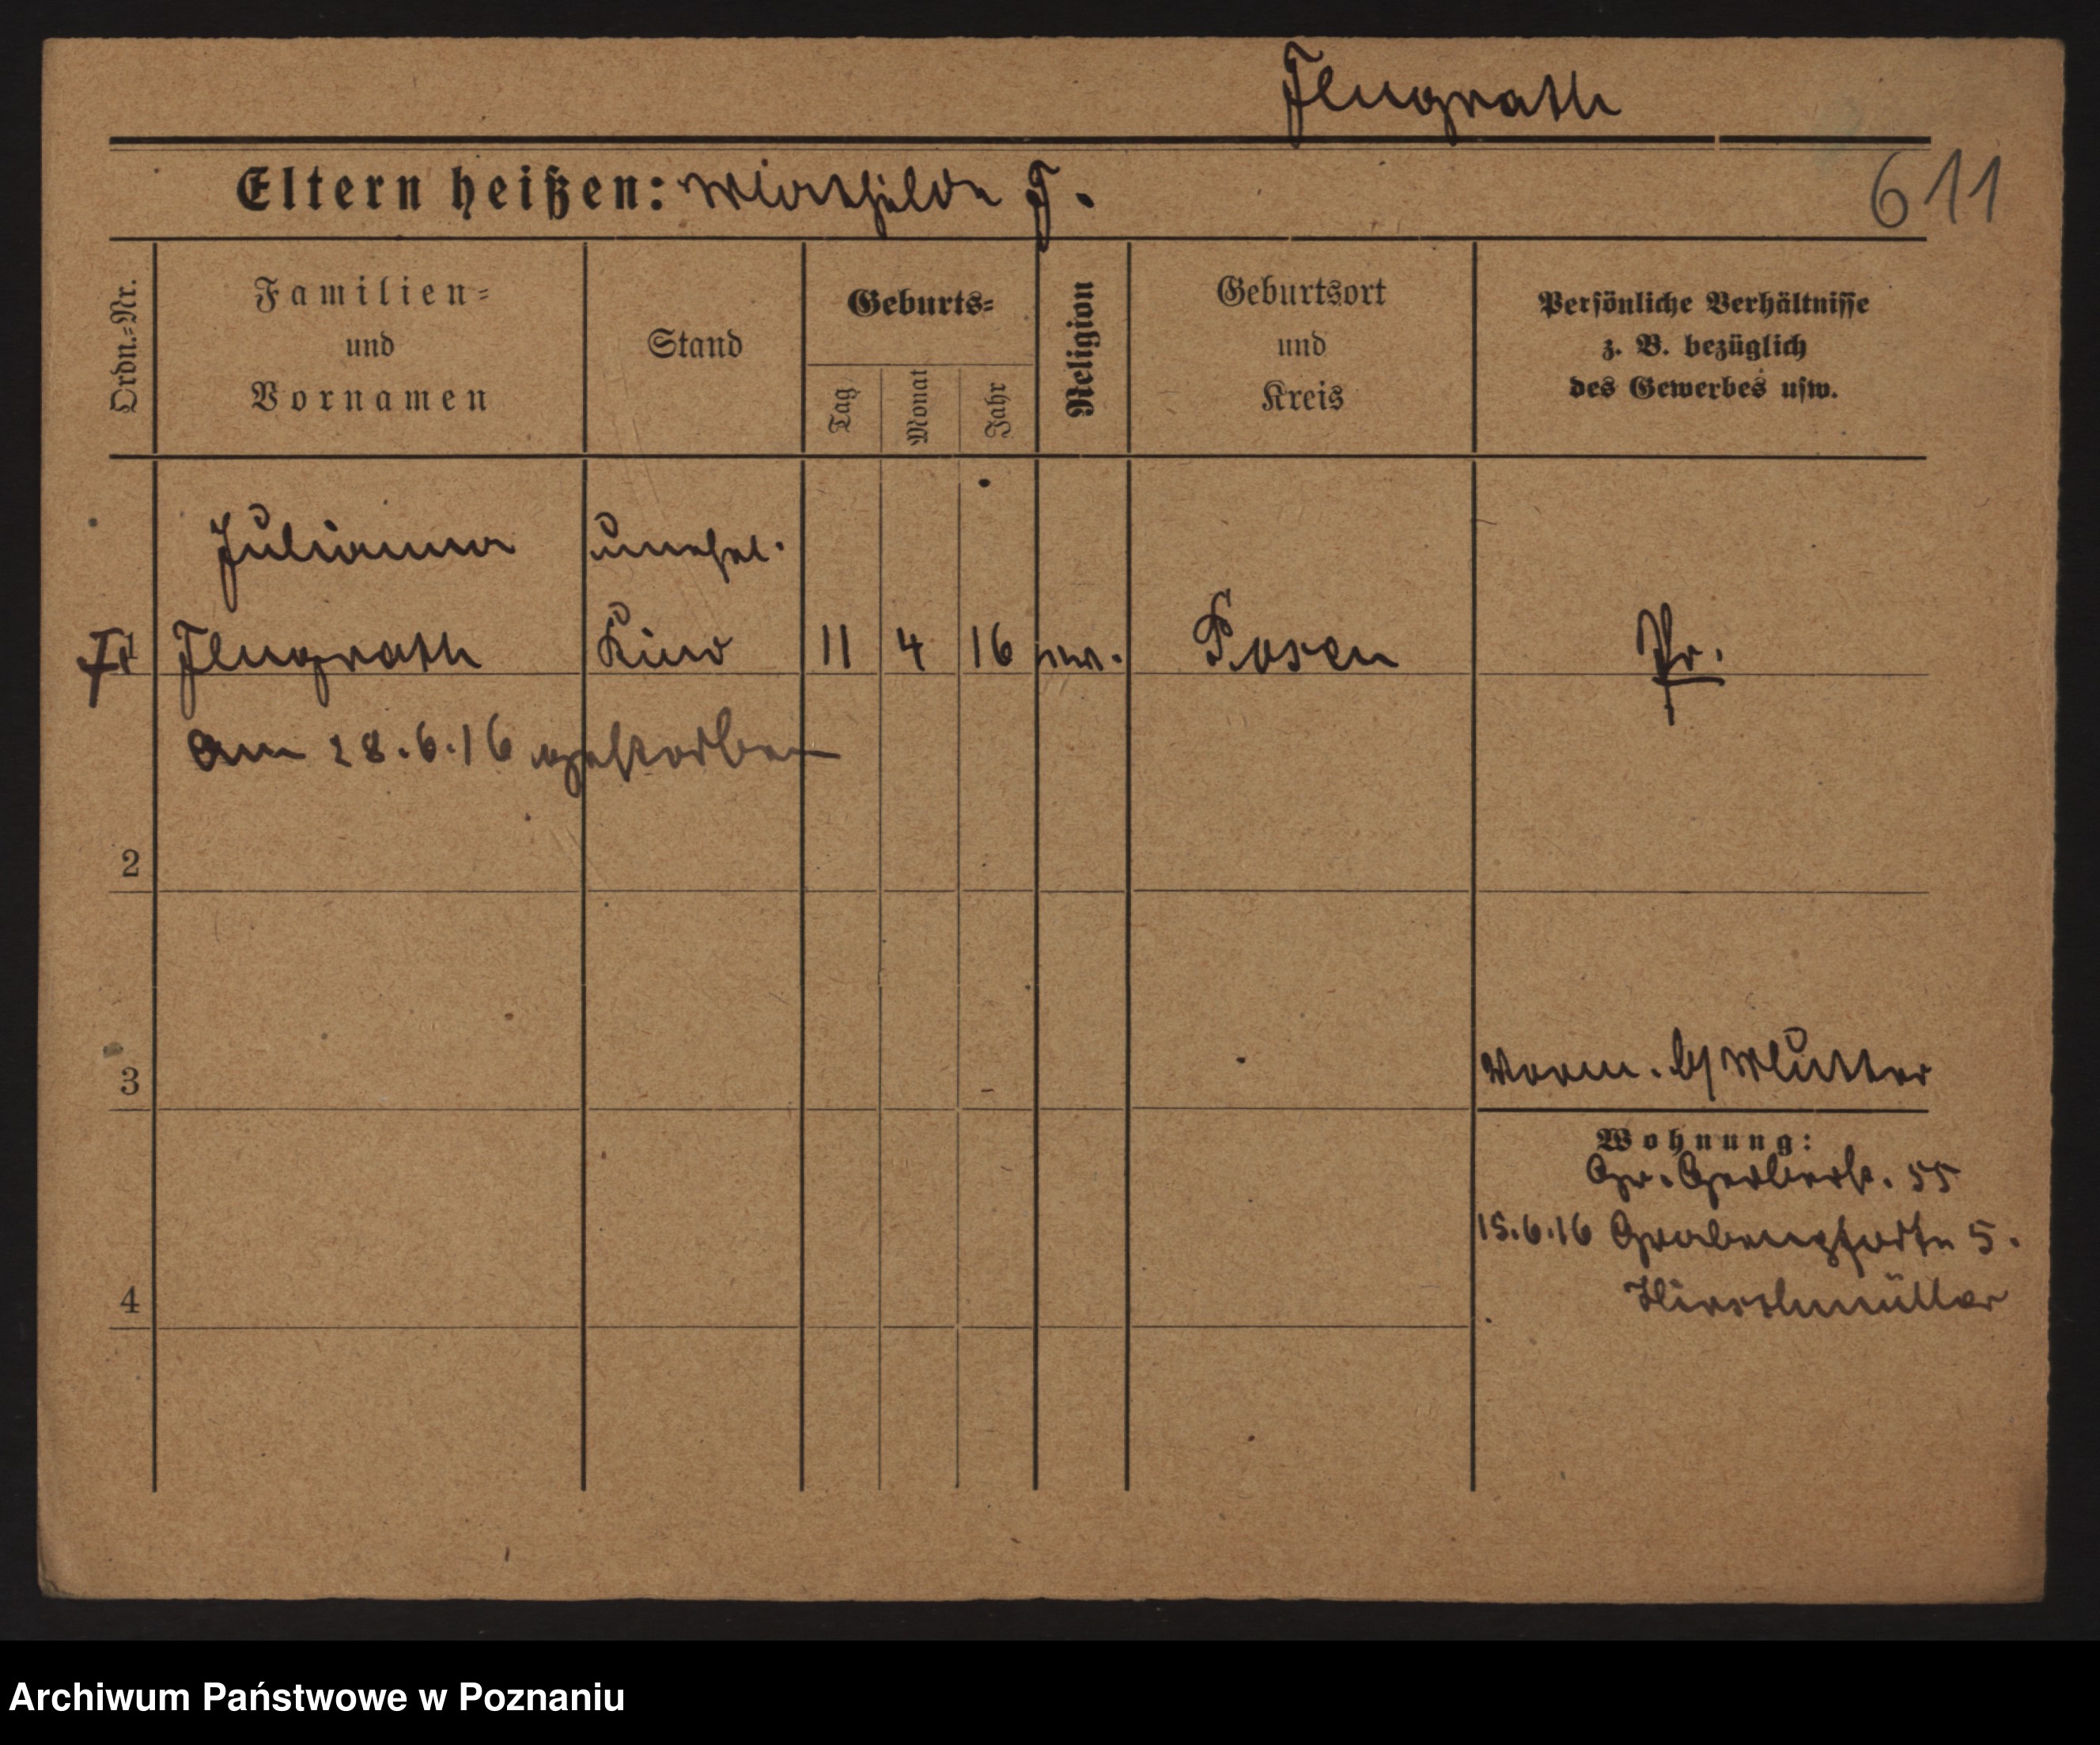 Flugrath
Eltern heißen: Mathilde F.
611
Ordn.-Nr.
Familien-
und
Vornamen
Stand
Geburts-
Tag
Monat
Jahr
Religion
Geburtsort
und
Kreis
Persönliche Verhältnisse
z. B. bezüglich
des Gewerbes usw.
Julianna unehel.
1 Flugrath Kind 11 4 16 Posen Pr.
am 28.6.16 gestorben
2
3
Vorm. b/ Mutter
Wohnung:
Gr. Gerberstr. 55
15.6.16 Grabenpforte 5.
4
Hirschmüller
Archiwum Państwowe w Poznaniu